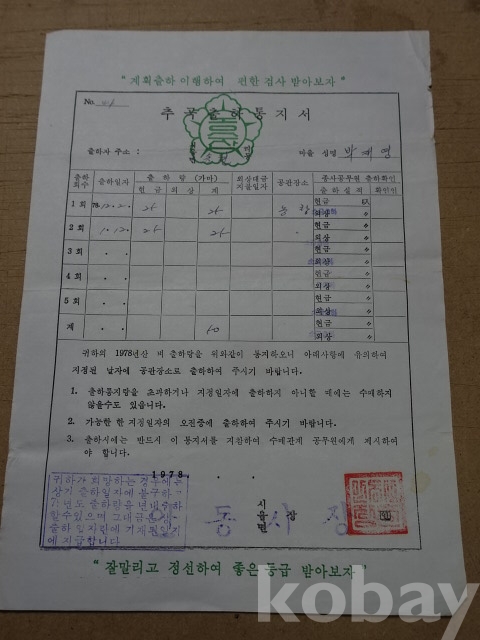 "계획출하 이행하여 편한 검사 받아보자"
No.
추곡출하통지서
출하자 주소 : 마을 성명 박재영
출하회수 출하일자 출하량 (가마) 외상대금지불일자 공판장소 종사공무원 출하확인
현금 외상 계 출하실적 확인인
1회 78.12.2. 25 25 농창 현금 K
외상 〃
2회 1.12. 25 25 현금 〃
외상 〃
3회 . . 현금 〃
외상 〃
4회 . . 현금 〃
외상 〃
5회 . . 현금 〃
외상 〃
계 50 현금 〃
외상 〃
귀하의 1978년산 벼 출하량을 위와같이 통지하오니 아래사항에 유의하여
지정된 날자에 공판장소로 출하하여 주시기 바랍니다.
1. 출하통지량을 초과하거나 지정일자에 출하하지 아니할 때에는 수매하지
않을수도 있읍니다.
2. 가능한 한 지정일자의 오전중에 출하하여 주시기 바랍니다.
3. 출하시에는 반드시 이 통지서를 지참하여 수매관계 공무원에게 제시하여
야 합니다.
1978 . .
귀하가 희망하는 경우에는
상기 출하일자에 불구하고
할수있으며 그대금은
출하 일자란에 기재된일자
에 지급합니다
시
읍 장
면
동 사 장
"잘말리고 정선하여 좋은 등급 받아보자"
kobay